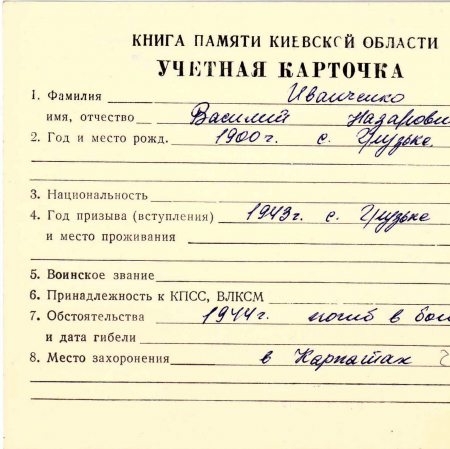 КНИГА ПАМЯТИ КИЕВСКОЙ ОБЛАСТИ
УЧЕТНАЯ КАРТОЧКА
1. Фамилия Иванченко
имя, отчество Василий Назарови
2. Год и место рожд. 1900 г. с. Грузьке.
3. Национальность
4. Год призыва (вступления) 1943 г. с. Грузьке
и место проживания
5. Воинское звание
6. Принадлежность к КПСС, ВЛКСМ
7. Обстоятельства 1944 г. погиб в бою
и дата гибели
8. Место захоронения в Карпатах